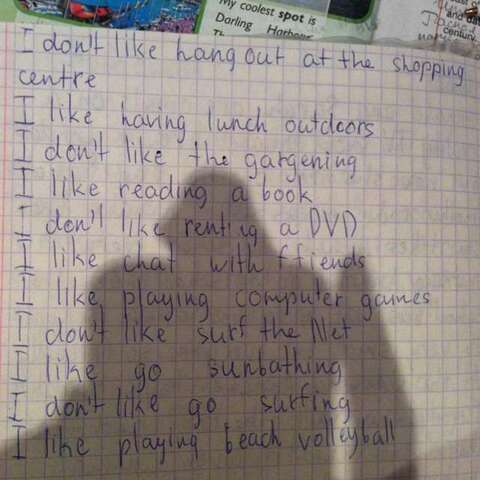 My coolest spot is
Darling Harbour
century
I don't like hang out at the shopping
centre
I like having lunch outdoors
I don't like the gargening
I like reading a book
I don't like renting a DVD
I like chat with ffiends
I like playing computer games
I don't like surf the Net
I like go sunbathing
I don't like go surfing
I like playing beach volleyball